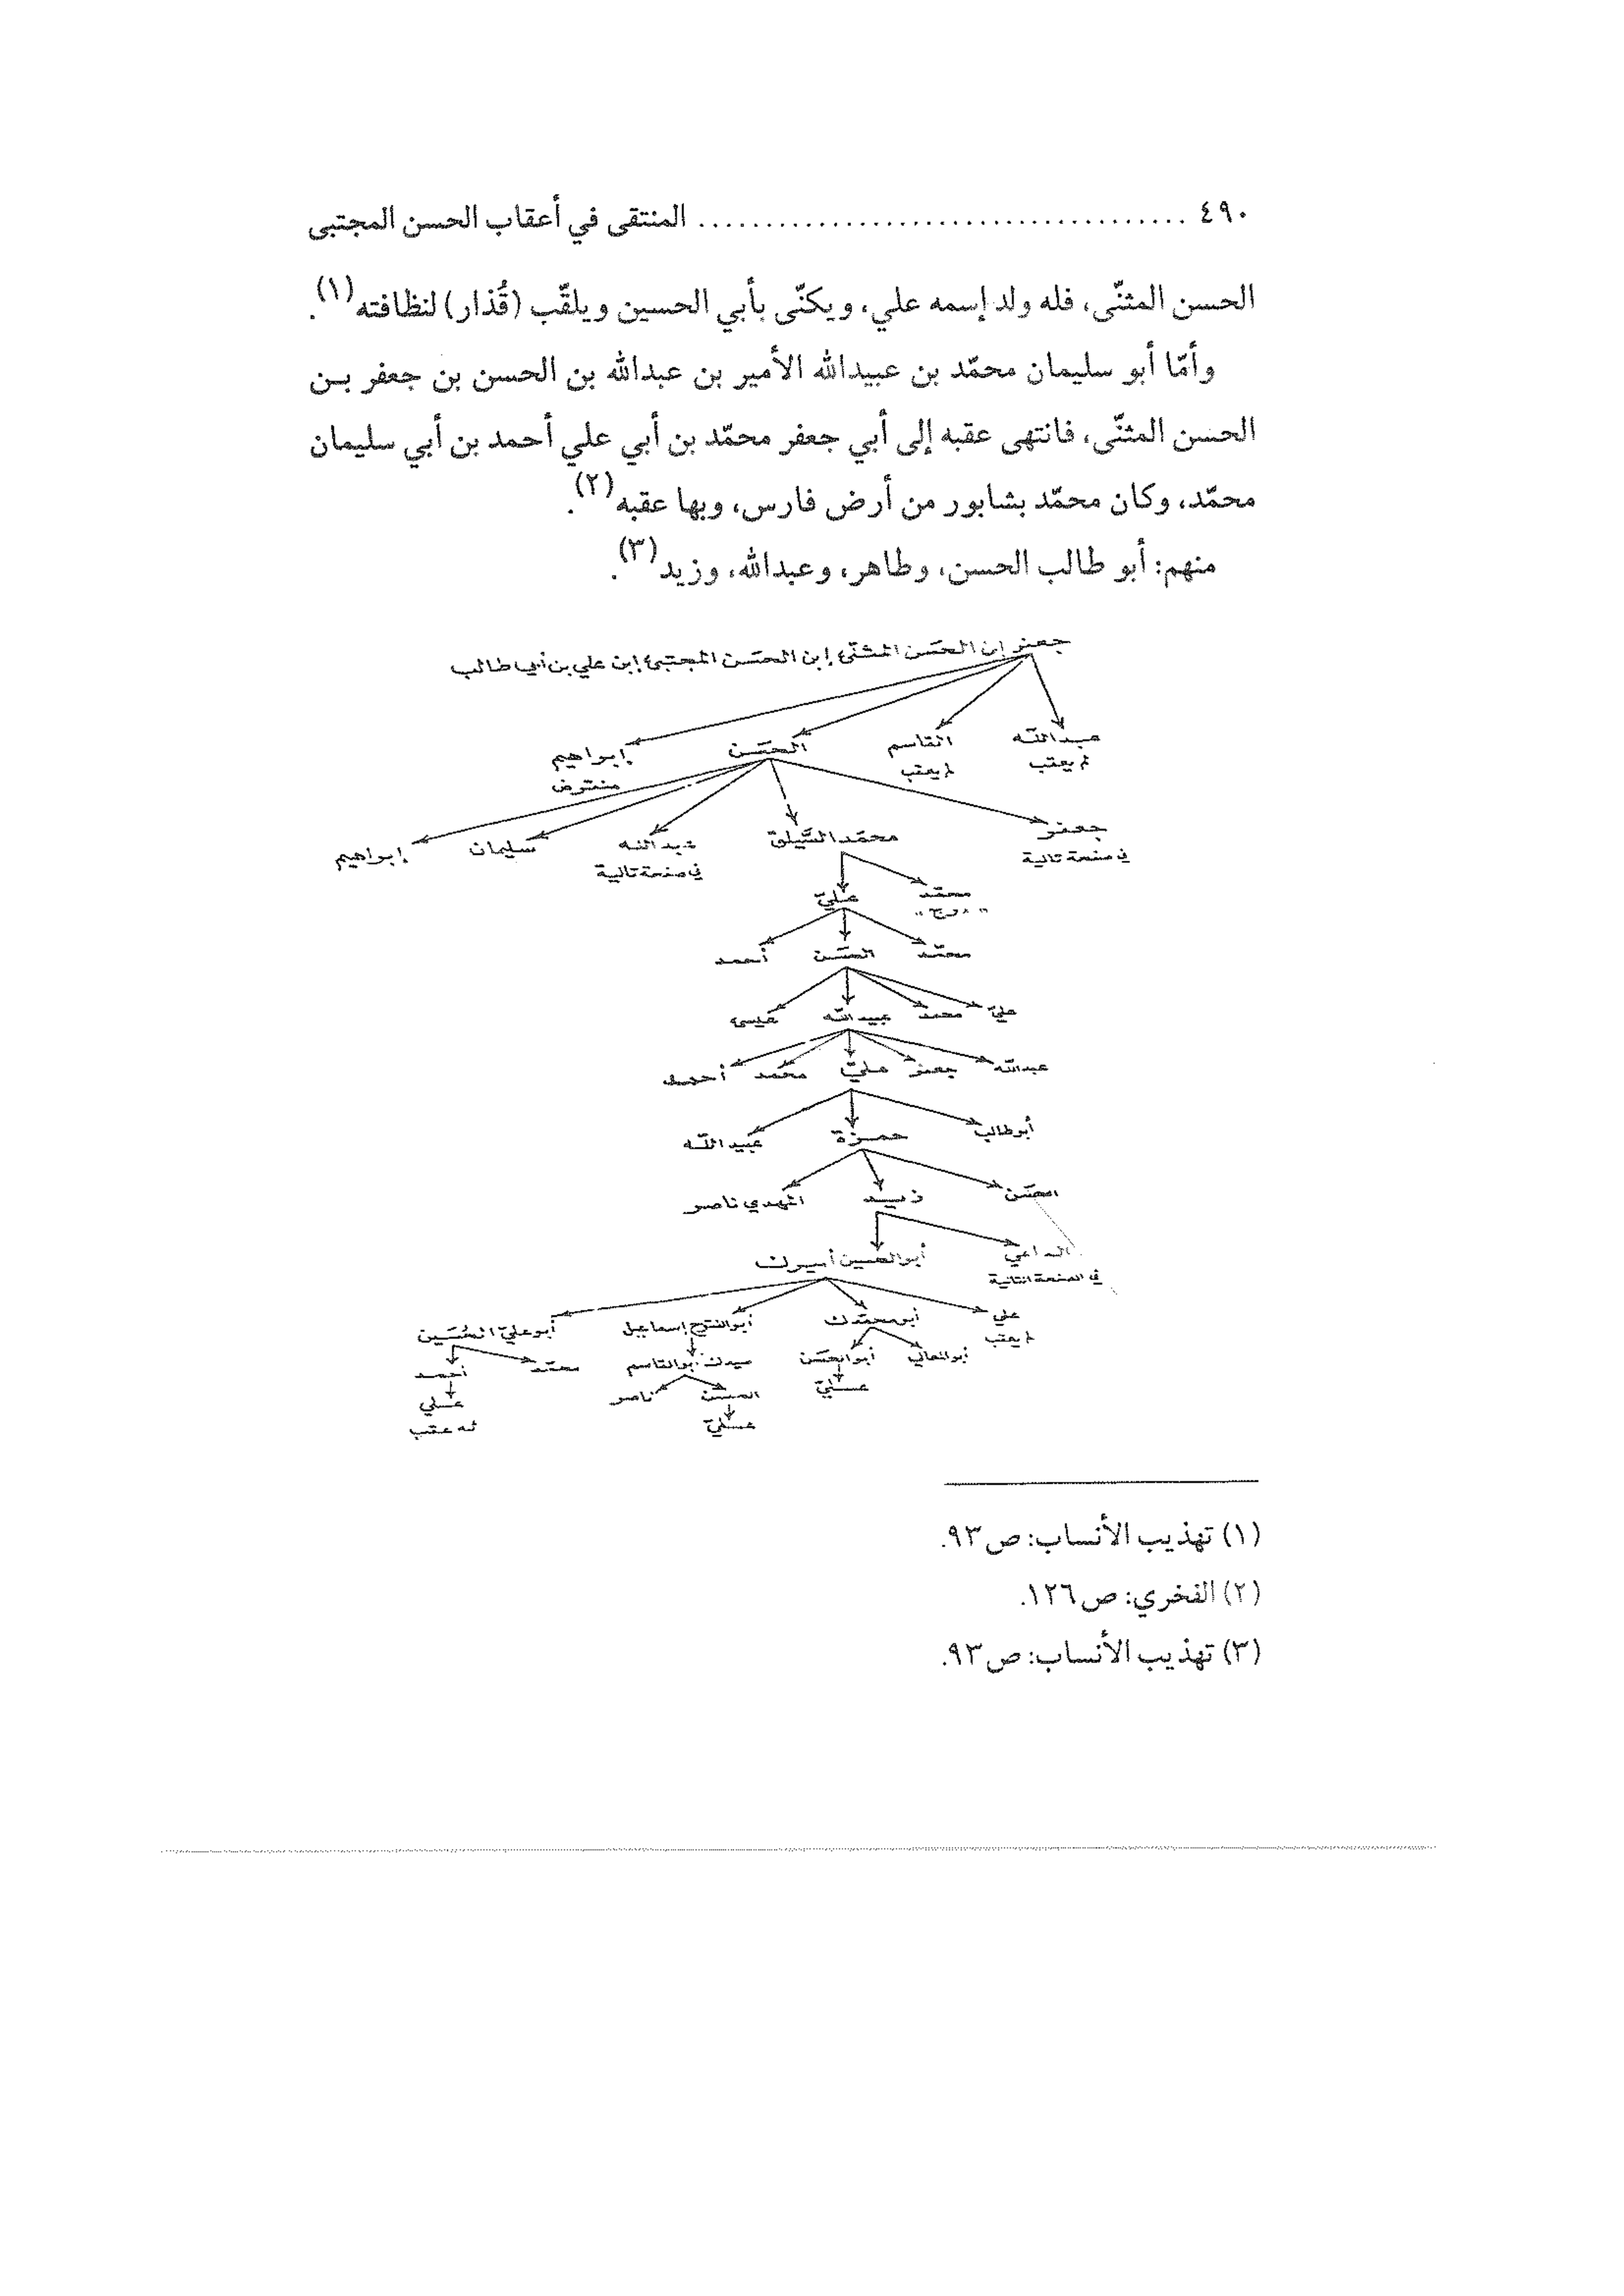 ٤٩٠ ..................................... المنتقى في أعقاب الحسن المجتبى
الحسن المثنّى، فله ولد إسمه علي، ويكنّى بأبي الحسين ويلقّب (قُذار) لنظافته (١).
وأمّا أبو سليمان محمّد بن عبيدالله الأمير بن عبدالله بن الحسن بن جعفر بـن
الحسن المثنّى، فانتهى عقبه إلى أبي جعفر محمّد بن أبي علي أحمد بن أبي سليمان
محمّد، وكان محمّد بشابور من أرض فارس، وبها عقبه (٢).
منهم: أبو طالب الحسن، وطاهر، وعبدالله، وزيد (٣).
جعفر إبن الحسَن المثنّى إبن الحسَن المجتبى إبن علي بن أبي طالب
عبدالله القاسم الحسَن إبراهيم
لم يعقب لم يعقب منقرض
جعفر محمّد السَّيلق عبدالله سليمان إبراهيم
في صفحة تالية في صفحة تالية
محمّد عليّ
"درج"
محمّد الحسَن أحمد
عليّ محمد عبيدالله عيسى
عبدالله جعفر عليّ محمد أحمد
أبو طالب حمزة عبيدالله
الحسَن زيد المهدي ناصر
الداعي أبو الحسين أميرك
في الصفحة التالية
علي أبو محمّدك أبو الفتوح إسماعيل أبو عليّ الحُسَين
لم يعقب
أبو المعالي أبو الحسَن ميدك أبو القاسم محمّد أحمد
عليّ الحسَن ناصر علي
عليّ له عقب
(١) تهذيب الأنساب: ص٩٣.
(٢) الفخري: ص١٢٦.
(٣) تهذيب الأنساب: ص٩٣.